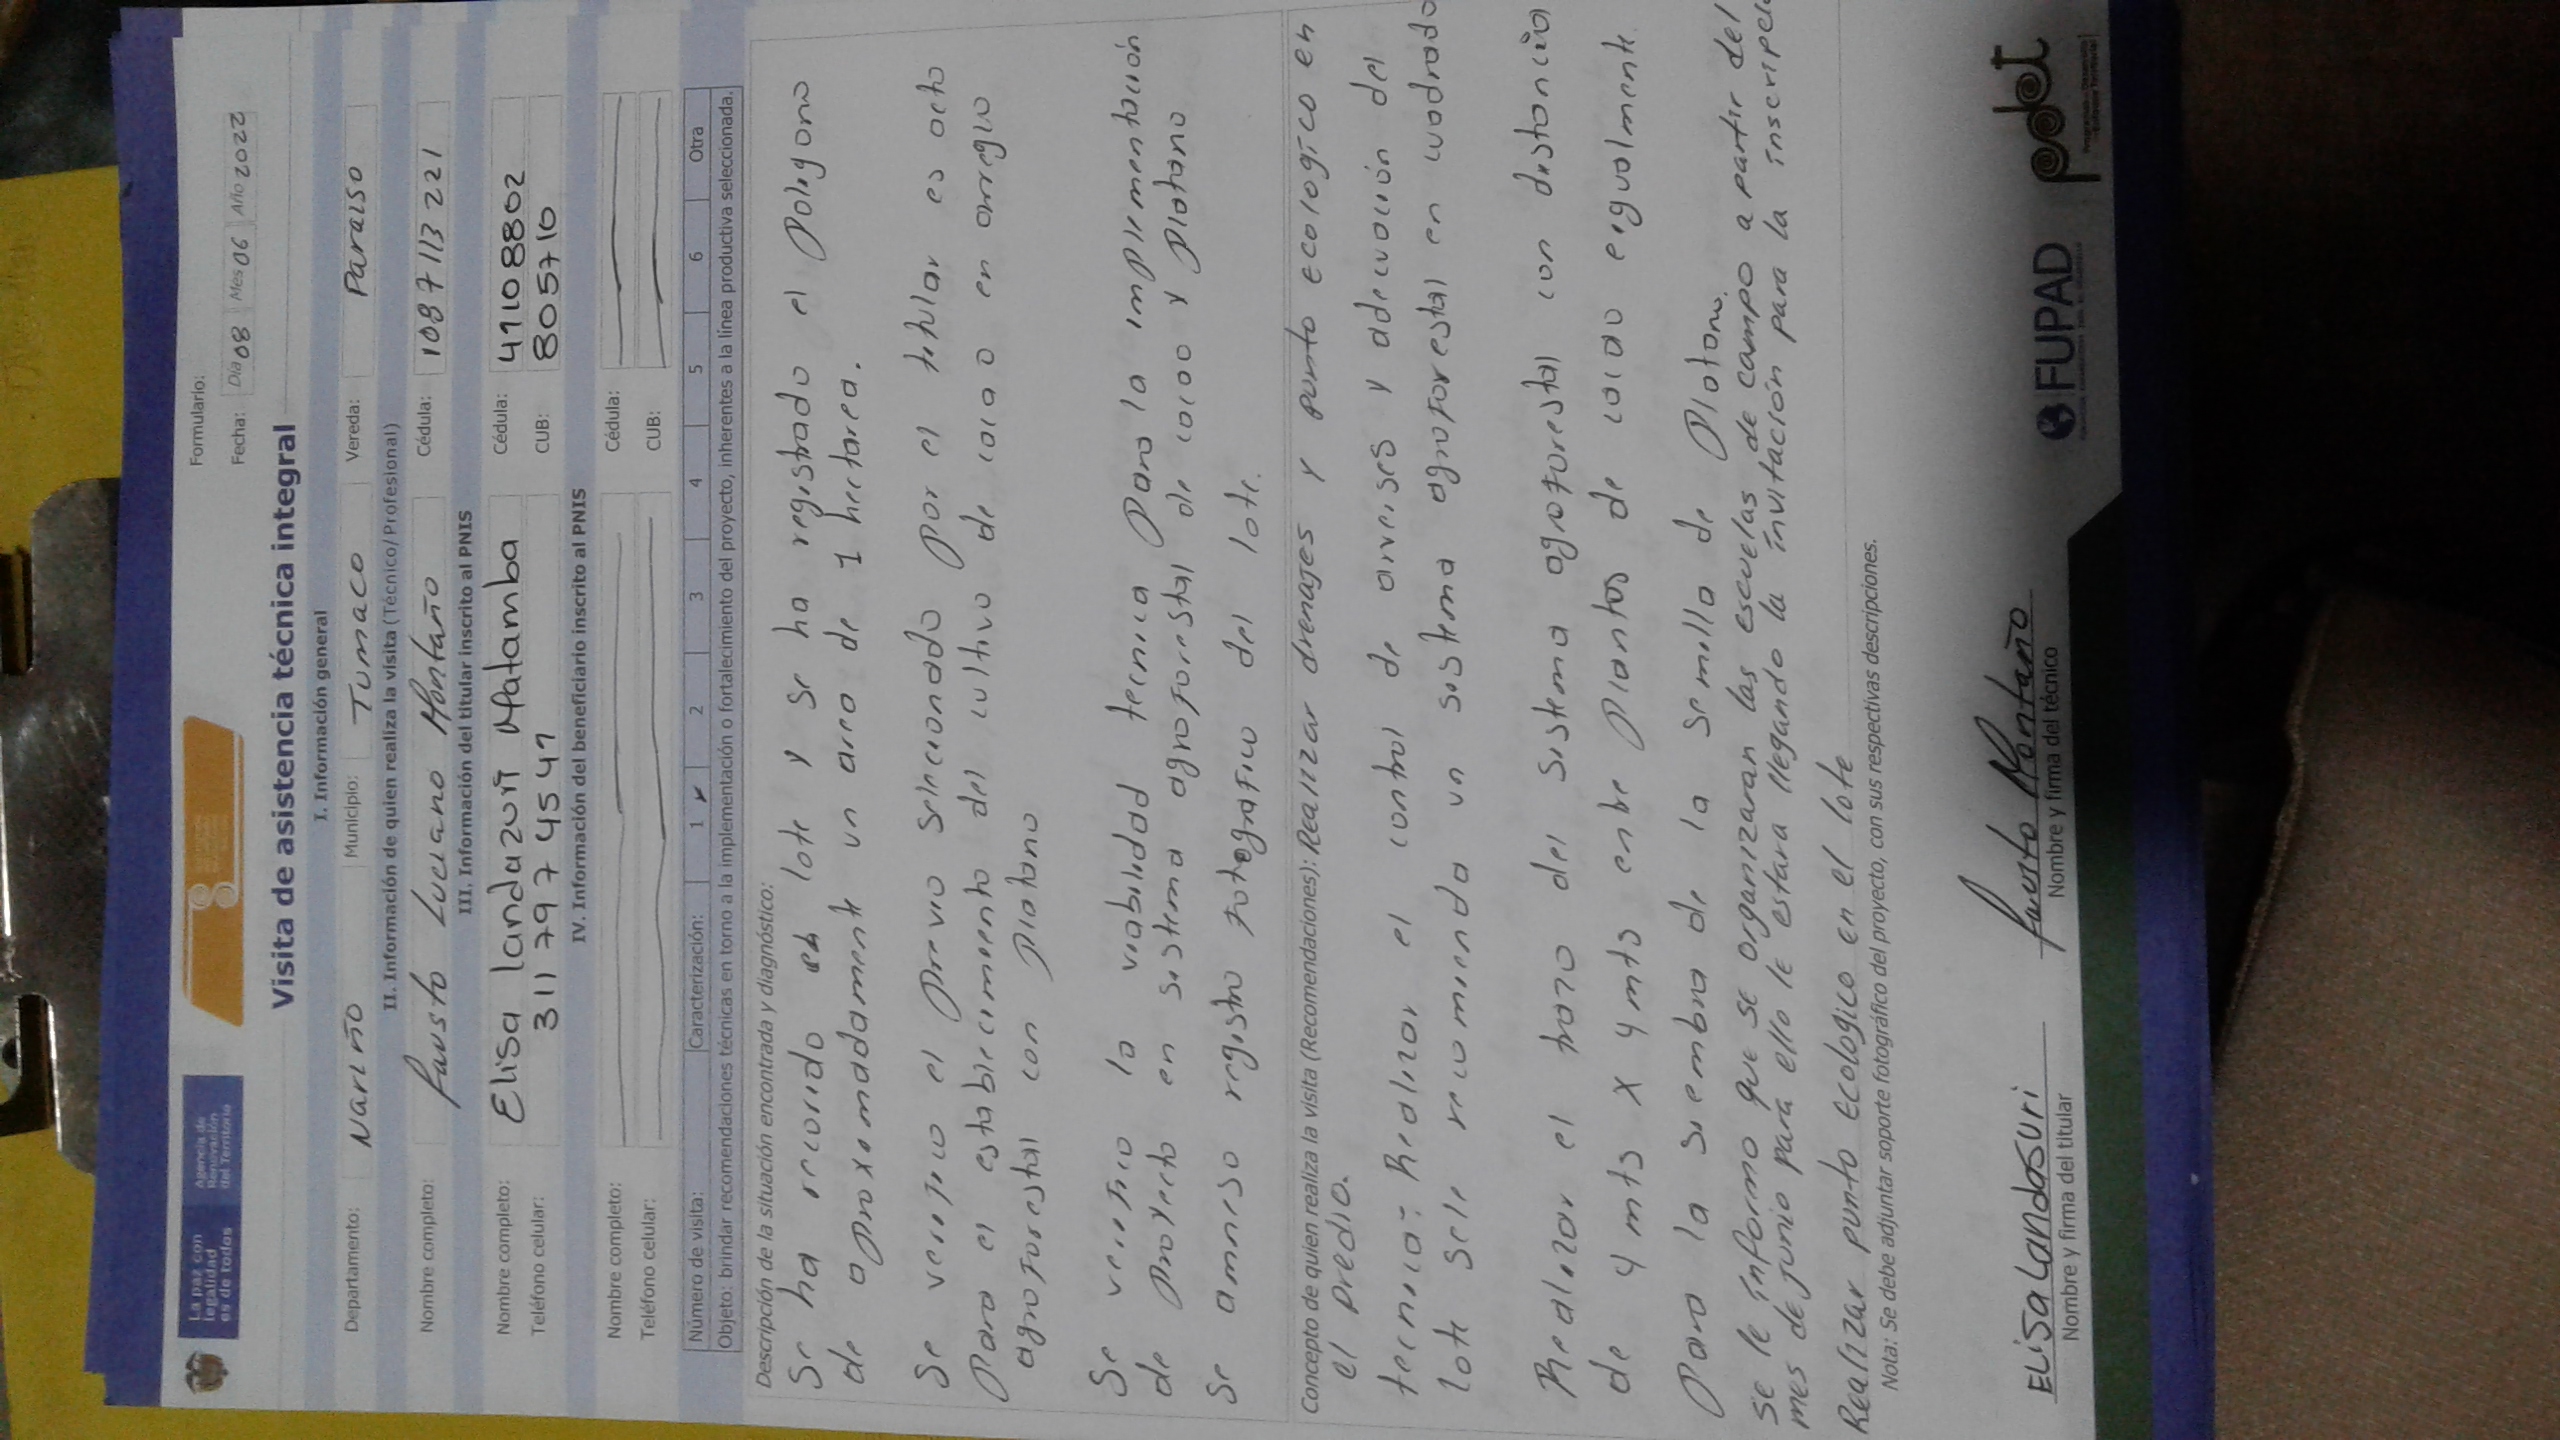 La paz con
legalidad
es de todos
Agencia de
Renovación
del Territorio
Formulario:
Fecha: Día 08 Mes 06 Año 2022
Visita de asistencia técnica integral
I. Información general
Departamento: Nariño Municipio: Tumaco Vereda: Paraiso
II. Información de quien realiza la visita (Técnico/Profesional)
Nombre completo: Fausto Luciano Montaño Cédula: 1087113221
III. Información del titular inscrito al PNIS
Nombre completo: Elisa landazuri Matamba Cédula: 41108802
Teléfono celular: 3117974541 CUB: 805710
IV. Información del beneficiario inscrito al PNIS
Nombre completo: Cédula:
Teléfono celular: CUB:
Número de visita: Caracterización: 1 2 3 4 5 6 Otra
Objeto: brindar recomendaciones técnicas en torno a la implementación o fortalecimiento del proyecto, inherentes a la línea productiva seleccionada.
Descripción de la situación encontrada y diagnóstico:
Se ha recorido el lote y se ha registrado el Poligono
de aproximadamente un area de 1 hectarea.
Se verifico el previo seleccionado por el titular es acto
Para el establecimiento del cultivo de cacao en arreglo
agroforestal con platano
Se verifico la viabilidad tecnica Para la implementación
de Proyecto en sistema agroforestal de cacao y platano
Se anexso registro fotografico del lote.
Concepto de quien realiza la visita (Recomendaciones): Realizar drenajes y punto ecologico en
el predio.
tecnica: Realizar el control de arvenses y adecuación del
lote se le recomienda un sistema agroforestal en cuadrado
Realizar el trazo del sistema agroforestal con distancia
de 4 mts x 4 mts entre Plantas de cacao e igualmente
Para la siembra de la semilla de Platano.
Se le informo que se organizaran las escuelas de campo a partir del
mes de junio para ello le estara llegando la invitación para la inscripció
Realizar punto ecologico en el lote
Nota: Se debe adjuntar soporte fotográfico del proyecto, con sus respectivas descripciones.
Elisa Landasuri Fausto Montaño
Nombre y firma del titular Nombre y firma del técnico
FUPAD
pdet